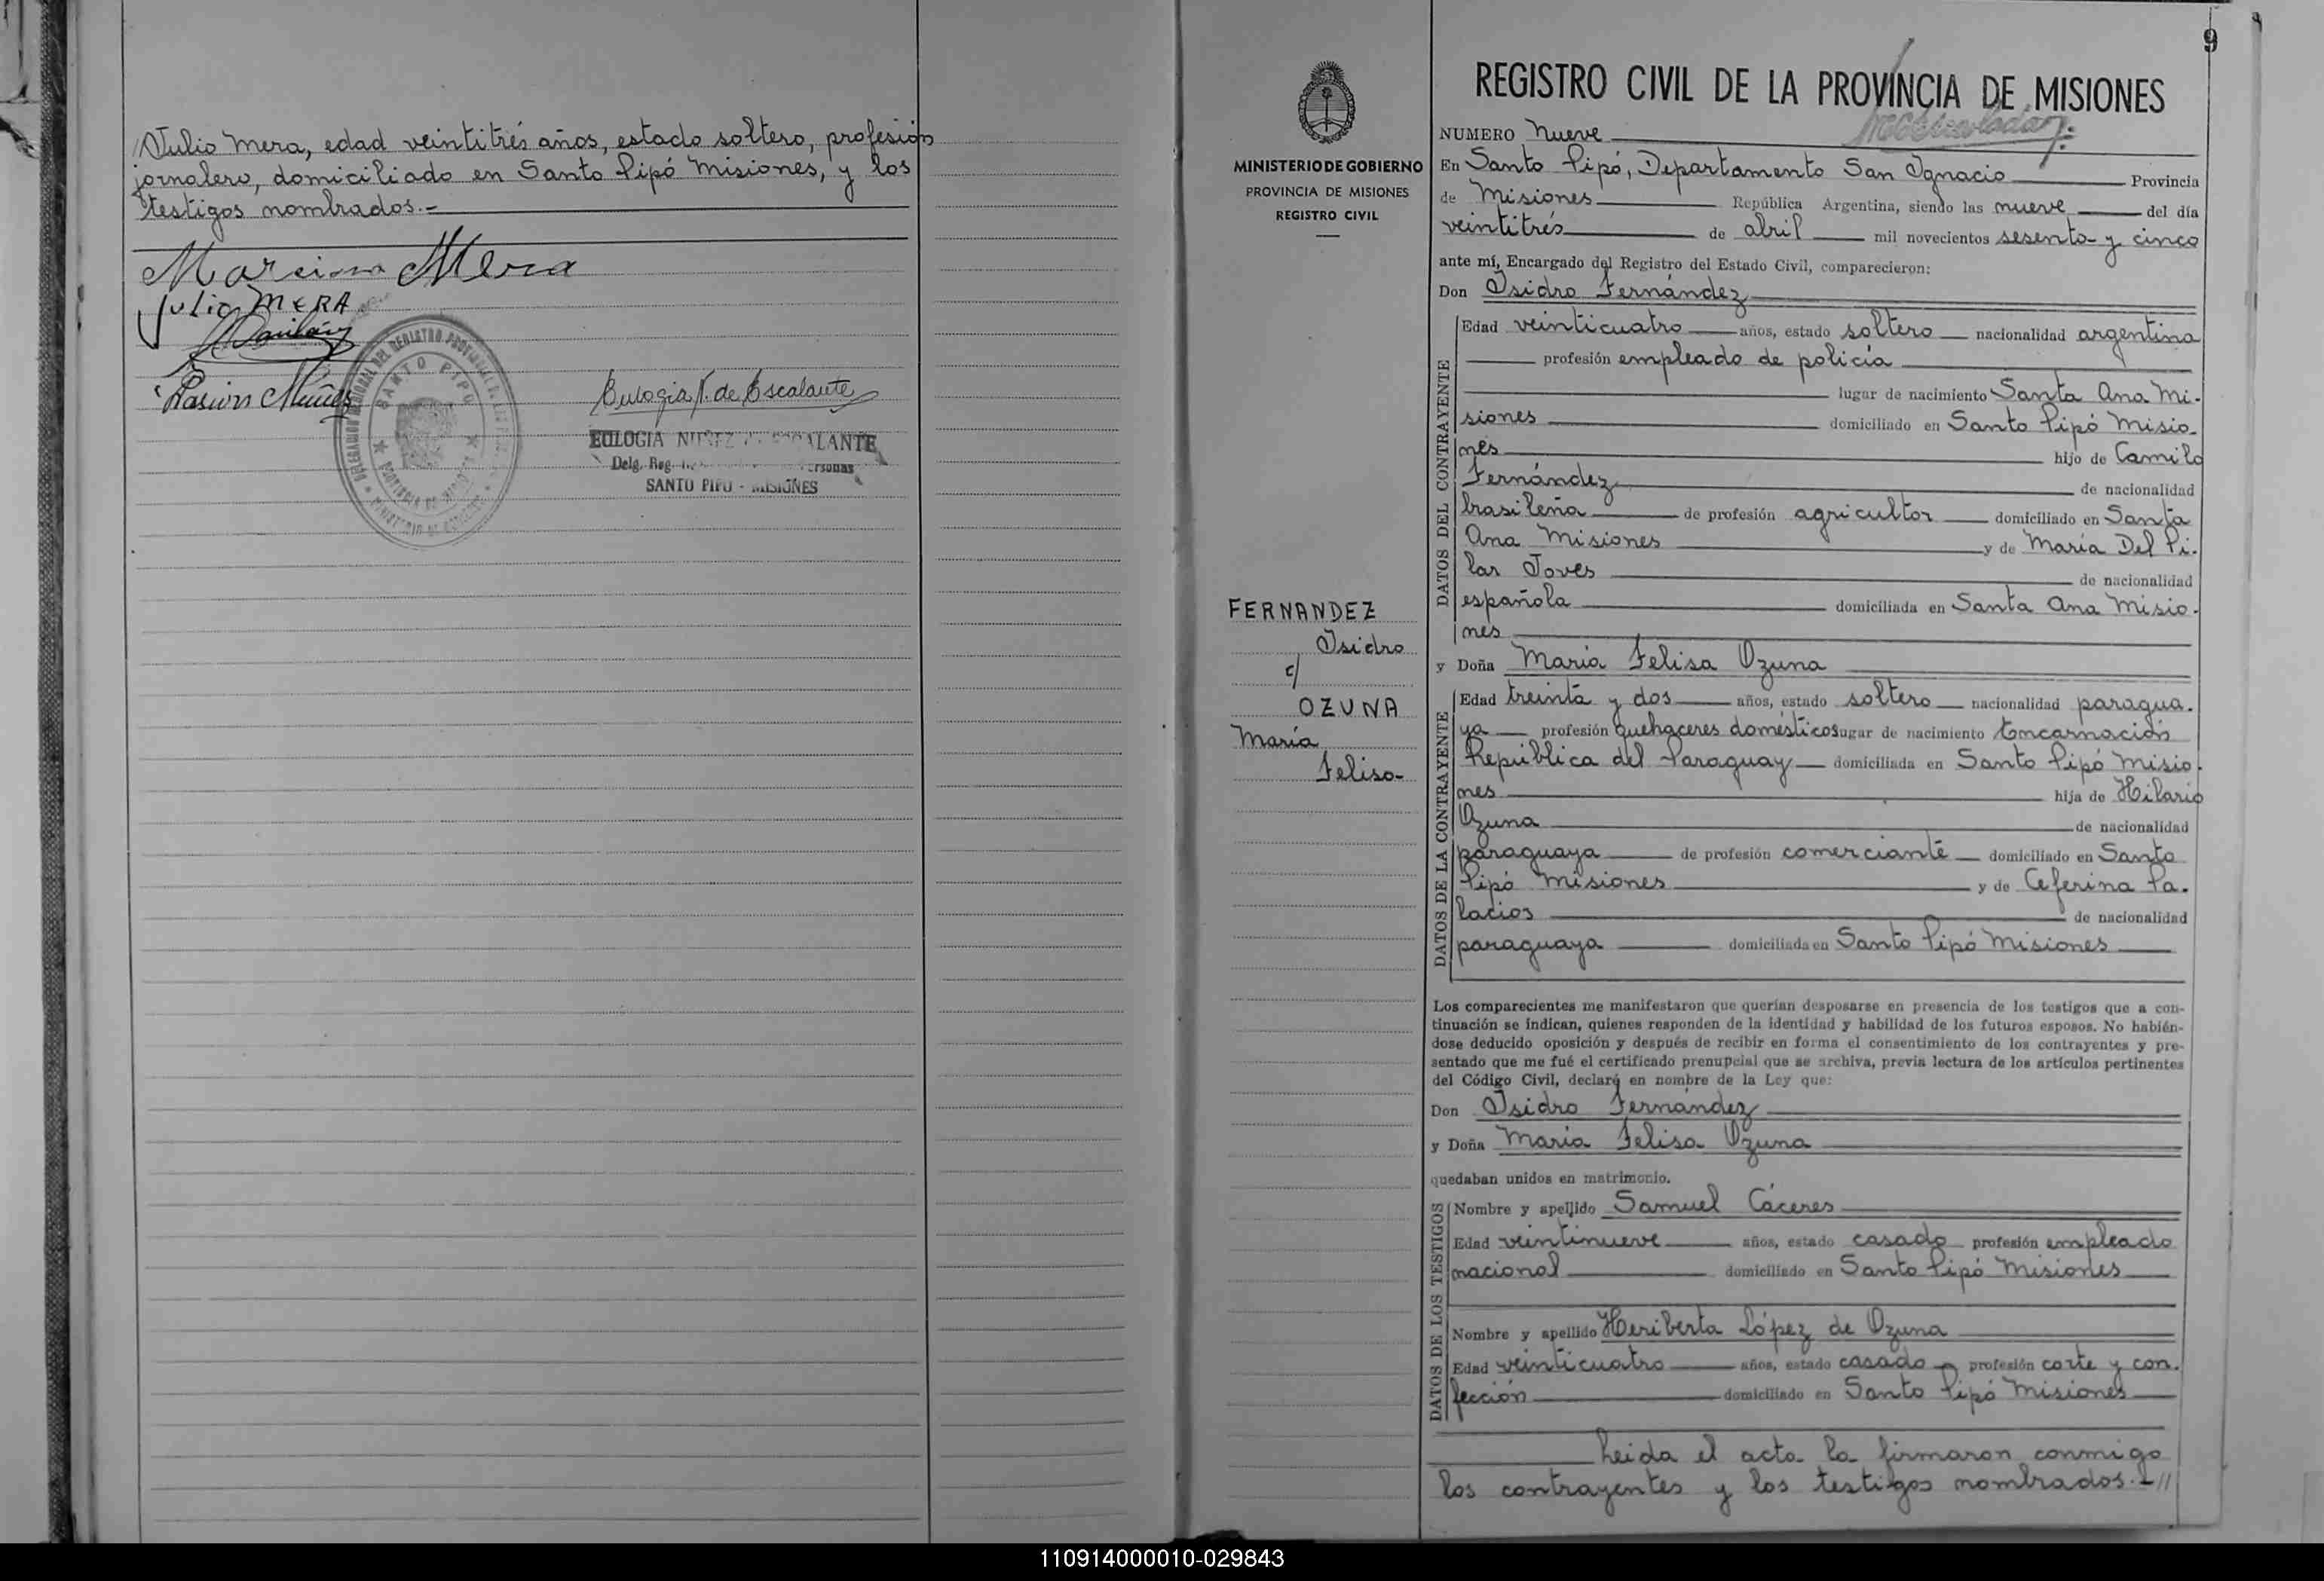 //Julio Mera, edad veintitrés años, estado soltero, profesión
jornalero, domiciliado en Santo Pipó Misiones, y los
testigos nombrados.-
Mera
Julio MERA
Eulogia N. de Escalante
EULOGIA NUÑEZ DE ESCALANTE
Delg. Reg.
SANTO PIPO - MISIONES
SANTO PIPO
9
MINISTERIO DE GOBIERNO
PROVINCIA DE MISIONES
REGISTRO CIVIL
FERNANDEZ
Isidro
c/
OZUNA
María
Felisa
REGISTRO CIVIL DE LA PROVINCIA DE MISIONES
NUMERO Nueve
En Santo Pipó, Departamento San Ignacio Provincia
de Misiones República Argentina, siendo las nueve del día
veintitrés de abril mil novecientos sesenta y cinco
ante mí, Encargado del Registro del Estado Civil, comparecieron:
Don Isidro Fernández
DATOS DEL CONTRAYENTE
Edad veinticuatro años, estado soltero nacionalidad argentina
profesión empleado de policía
lugar de nacimiento Santa Ana Mi-
siones domiciliado en Santo Pipó Misio-
nes hijo de Camilo
Fernández de nacionalidad
brasileña de profesión agricultor domiciliado en Santa
Ana Misiones y de María Del Pi-
lar Joves de nacionalidad
española domiciliada en Santa Ana Misio-
nes
y Doña María Felisa Ozuna
DATOS DE LA CONTRAYENTE
Edad treinta y dos años, estado soltero nacionalidad paragua-
ya profesión quehaceres domésticos lugar de nacimiento Encarnación
República del Paraguay domiciliada en Santo Pipó Misio-
nes hija de Hilario
Ozuna de nacionalidad
paraguaya de profesión comerciante domiciliado en Santo
Pipó Misiones y de Ceferina Pa-
lacios de nacionalidad
paraguaya domiciliada en Santo Pipó Misiones
Los comparecientes me manifestaron que querían desposarse en presencia de los testigos que a con-
tinuación se indican, quienes responden de la identidad y habilidad de los futuros esposos. No habién-
dose deducido oposición y después de recibir en forma el consentimiento de los contrayentes y pre-
sentado que me fué el certificado prenupcial que se archiva, previa lectura de los artículos pertinentes
del Código Civil, declaré en nombre de la Ley que:
Don Isidro Fernández
y Doña María Felisa Ozuna
quedaban unidos en matrimonio.
DATOS DE LOS TESTIGOS
Nombre y apellido Samuel Cáceres
Edad veintinueve años, estado casado profesión empleado
nacional domiciliado en Santo Pipó Misiones
Nombre y apellido Heriberta López de Ozuna
Edad veinticuatro años, estado casado profesión corte y con-
fección domiciliado en Santo Pipó Misiones
Leida el acta la firmaron conmigo
los contrayentes y los testigos nombrados.-//
110914000010-029843